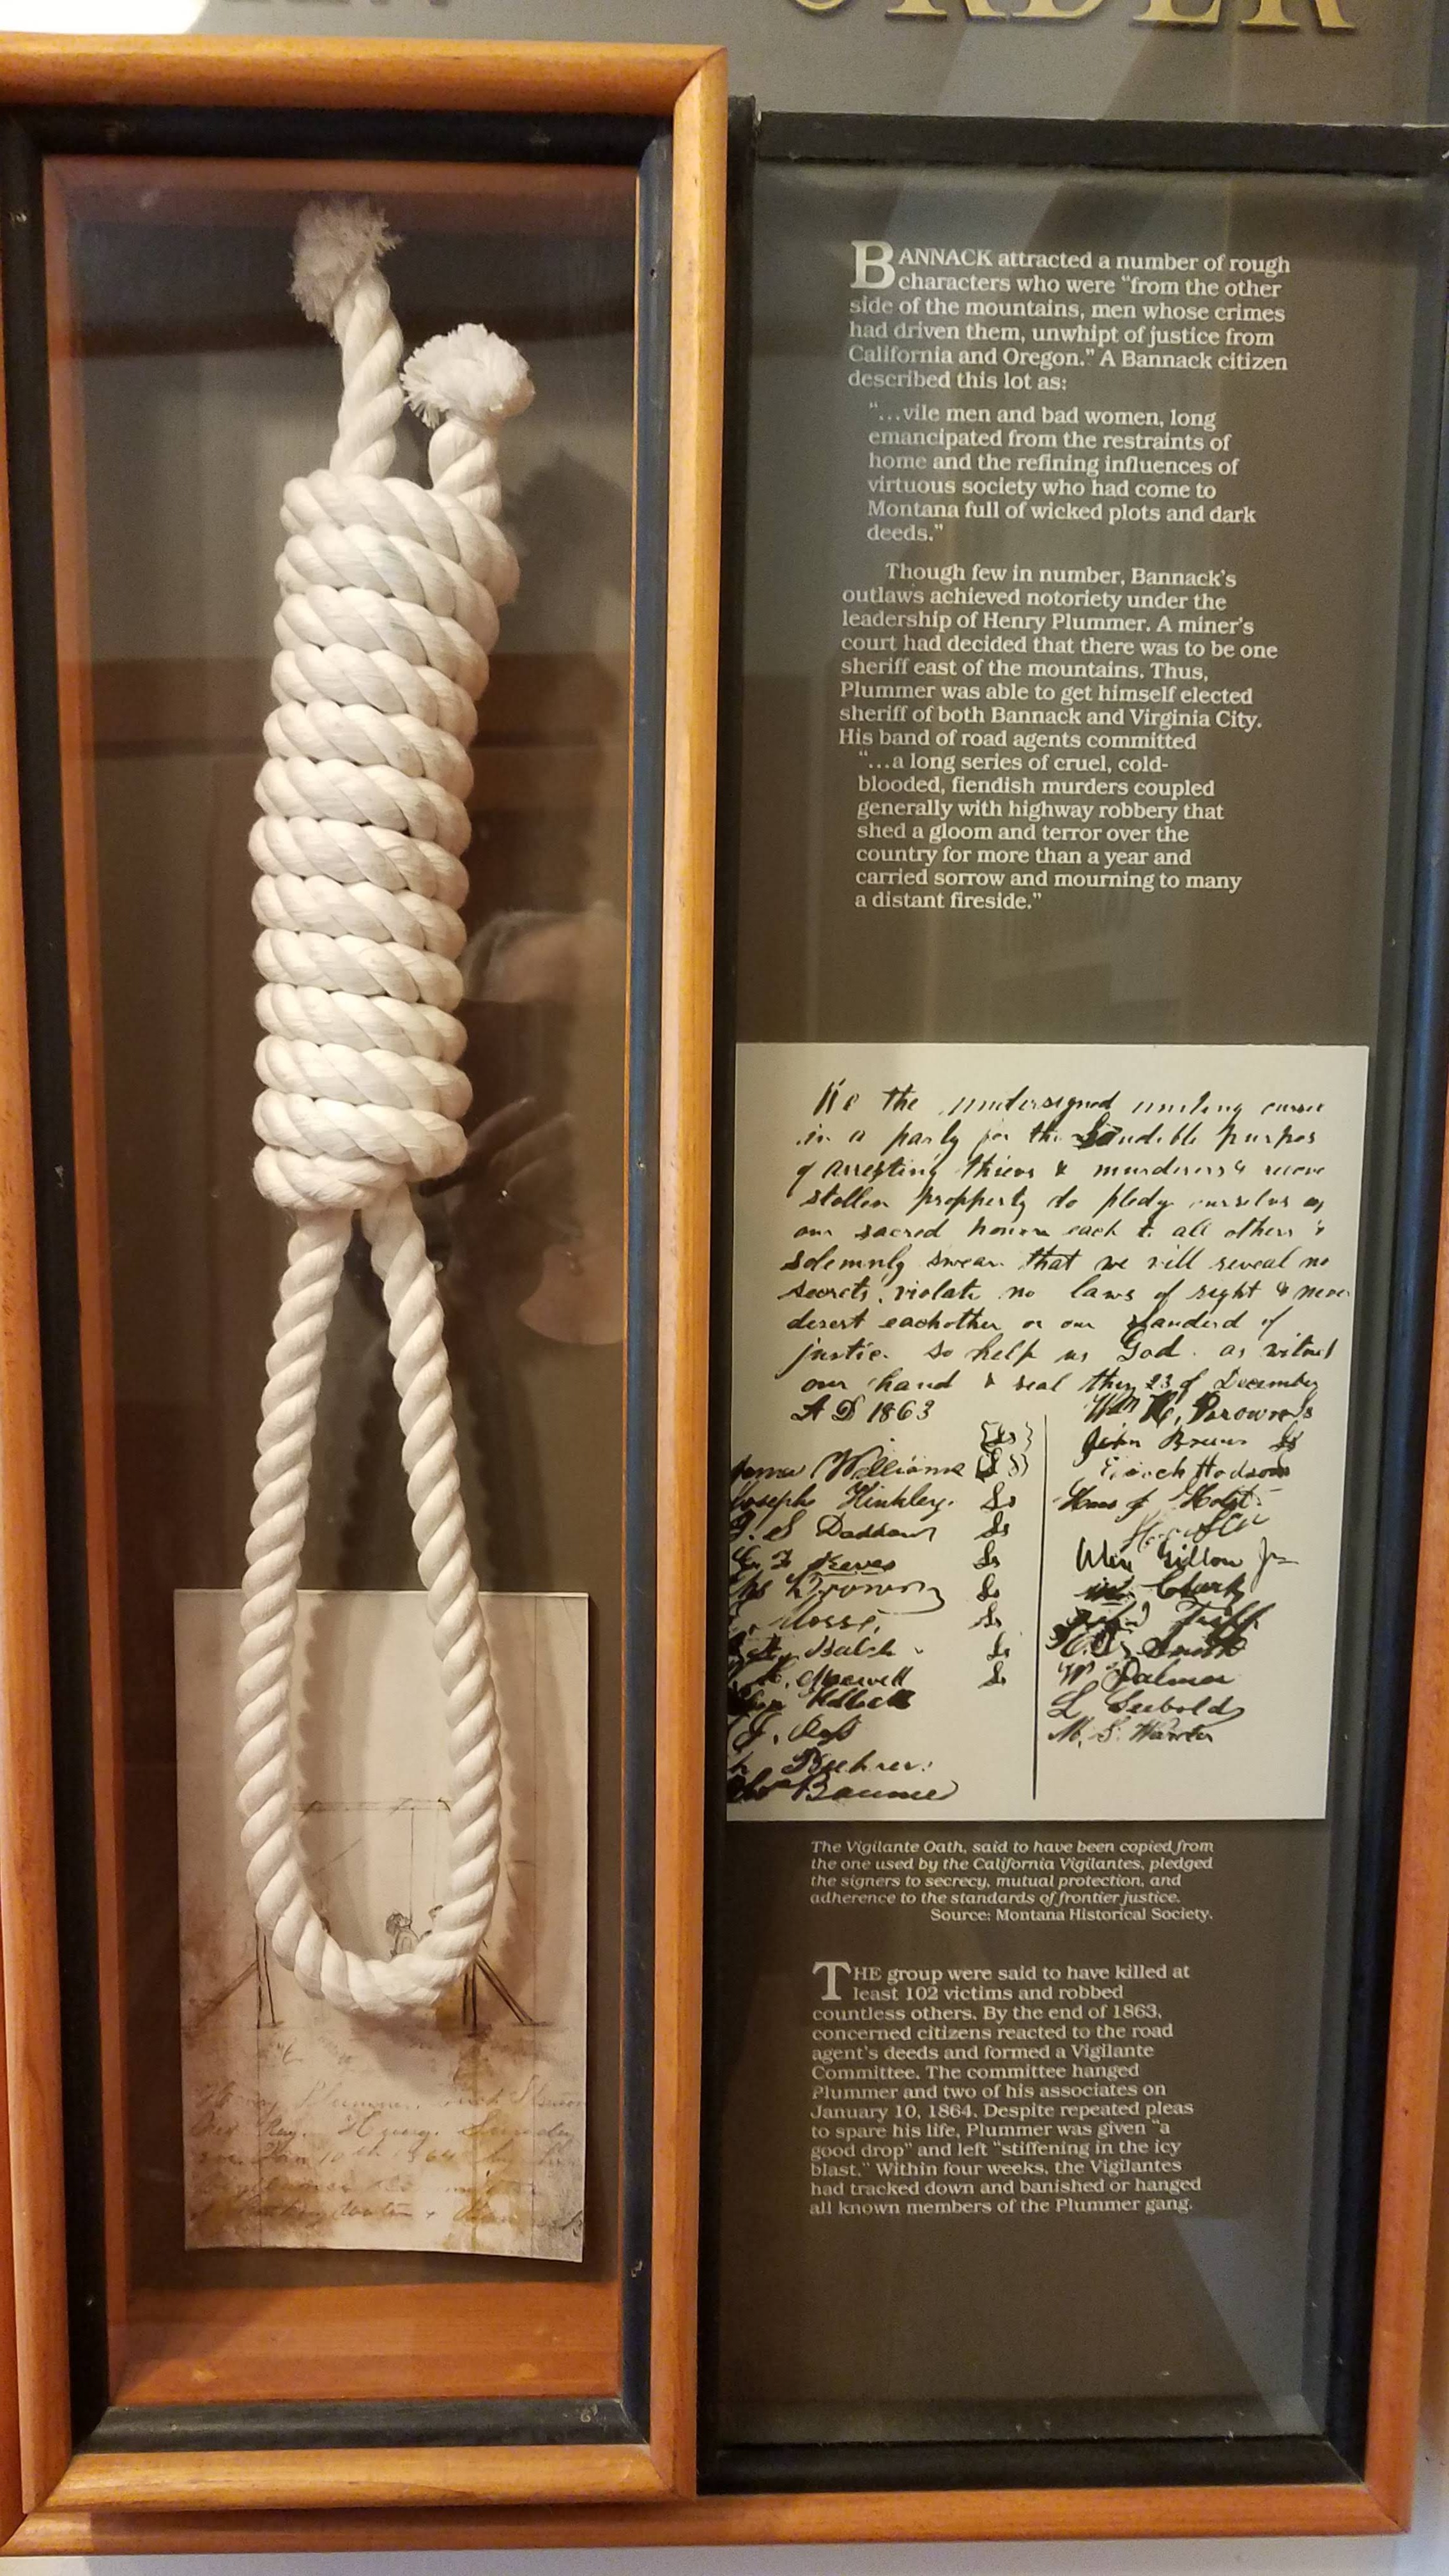 ORDER
BANNACK attracted a number of rough
characters who were “from the other
side of the mountains, men whose crimes
had driven them, unwhipt of justice from
California and Oregon.” A Bannack citizen
described this lot as:
“...vile men and bad women, long
emancipated from the restraints of
home and the refining influences of
virtuous society who had come to
Montana full of wicked plots and dark
deeds.”
Though few in number, Bannack's
outlaws achieved notoriety under the
leadership of Henry Plummer. A miner's
court had decided that there was to be one
sheriff east of the mountains. Thus,
Plummer was able to get himself elected
sheriff of both Bannack and Virginia City.
His band of road agents committed
“...a long series of cruel, cold-
blooded, fiendish murders coupled
generally with highway robbery that
shed a gloom and terror over the
country for more than a year and
carried sorrow and mourning to many
a distant fireside.”
We the undersigned uniting
in a party for the Laudible purpos
of arresting thievs & murderers &
stollen propperty do pledge ourselvs
our sacred honor each to all others &
solemnly swear that we will reveal no
secrets, violate no laws of right & never
desert eachother or our standerd of
justice so help us God. as witness
our hand & seal this 23 of December
A D 1863
James Williams
Joseph Hinkley
Balch
Maxwell
Buehrer
Baume
John Brown
Enoch Hodson
Hans J Holst
Gillon Jr
Clark
Smith
W Palmer
L Seebold
M. S. Warner
The Vigilante Oath, said to have been copied from
the one used by the California Vigilantes, pledged
the signers to secrecy, mutual protection, and
adherence to the standards of frontier justice.
Source: Montana Historical Society.
THE group were said to have killed at
least 102 victims and robbed
countless others. By the end of 1863,
concerned citizens reacted to the road
agent's deeds and formed a Vigilante
Committee. The committee hanged
Plummer and two of his associates on
January 10, 1864. Despite repeated pleas
to spare his life, Plummer was given “a
good drop” and left “stiffening in the icy
blast.” Within four weeks, the Vigilantes
had tracked down and banished or hanged
all known members of the Plummer gang.